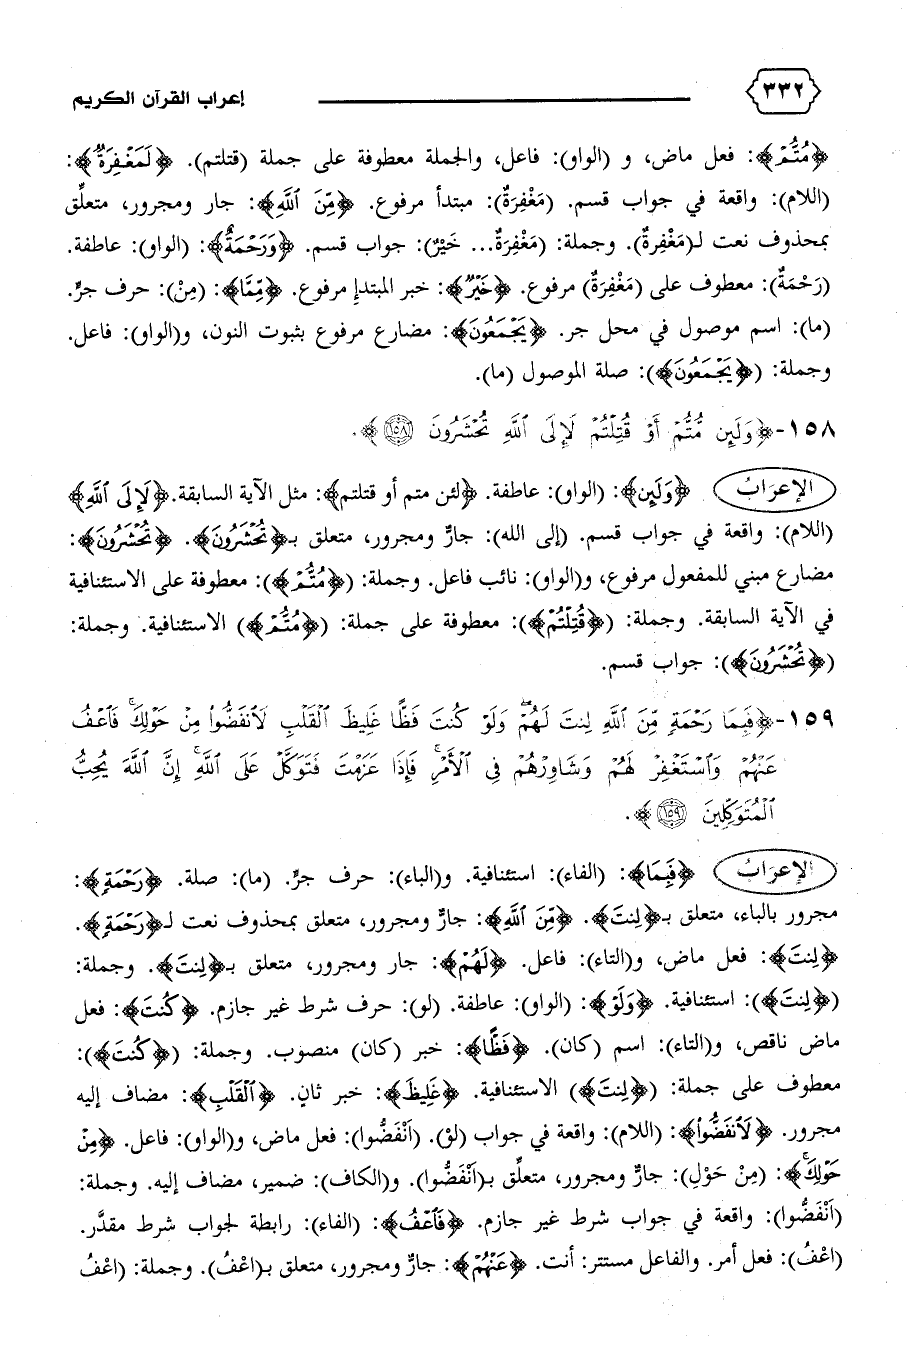 ٣٣٢
إعراب القرآن الكريم
﴿مُتُّمْ﴾: فعل ماض، و (الواو): فاعل، والجملة معطوفة على جملة (قتلتم). ﴿لَمَغْفِرَةٌ﴾:
(اللام): واقعة في جواب قسم. (مَغْفِرَةٌ): مبتدأ مرفوع. ﴿مِّنَ ٱللَّهِ﴾: جار ومجرور، متعلِّق
بمحذوف نعت لـ(مَغْفِرةٌ). وجملة: (مَغْفِرَةٌ... خَيْرٌ): جواب قسم. ﴿وَرَحْمَةٌ﴾: (الواو): عاطفة.
(رَحْمَةٌ): معطوف على (مَغْفِرَةٌ) مرفوع. ﴿خَيْرٌ﴾: خبر المبتدإ مرفوع. ﴿مِّمَّا﴾: (مِنْ): حرف جرٍّ.
(ما): اسم موصول في محل جر. ﴿يَجْمَعُونَ﴾: مضارع مرفوع بثبوت النون، و(الواو): فاعل.
وجملة: (﴿يَجْمَعُونَ﴾): صلة الموصول (ما).
١٥٨-﴿وَلَئِن مُّتُّمْ أَوْ قُتِلْتُمْ لَإِلَى ٱللَّهِ تُحْشَرُونَ ١٥٨﴾.
الإعرَابُ ﴿وَلَئِن﴾: (الواو): عاطفة. ﴿لئن متم أو قتلتم﴾: مثل الآية السابقة.﴿لَإِلَى ٱللَّهِ﴾
(اللام): واقعة في جواب قسم. (إلى الله): جارٌّ ومجرور، متعلق بـ﴿تُحْشَرُونَ﴾. ﴿تُحْشَرُونَ﴾:
مضارع مبني للمفعول مرفوع، و(الواو): نائب فاعل. وجملة: (﴿مُتُّمْ﴾): معطوفة على الاستئنافية
في الآية السابقة. وجملة: (﴿قُتِلْتُمْ﴾): معطوفة على جملة: (﴿مُتُّمْ﴾) الاستئنافية. وجملة:
(﴿تُحْشَرُونَ﴾): جواب قسم.
١٥٩-﴿فَبِمَا رَحْمَةٍ مِّنَ ٱللَّهِ لِنتَ لَهُمْ ۖ وَلَوْ كُنتَ فَظًّا غَلِيظَ ٱلْقَلْبِ لَٱنفَضُّوا۟ مِنْ حَوْلِكَ ۖ فَٱعْفُ
عَنْهُمْ وَٱسْتَغْفِرْ لَهُمْ وَشَاوِرْهُمْ فِى ٱلْأَمْرِ ۖ فَإِذَا عَزَمْتَ فَتَوَكَّلْ عَلَى ٱللَّهِ ۚ إِنَّ ٱللَّهَ يُحِبُّ
ٱلْمُتَوَكِّلِينَ ١٥٩﴾.
الإعرَابُ ﴿فَبِمَا﴾: (الفاء): استئنافية. و(الباء): حرف جرٍّ. (ما): صلة. ﴿رَحْمَةٍ﴾:
مجرور بالباء، متعلق بـ﴿لِنتَ﴾. ﴿مِّنَ ٱللَّهِ﴾: جارٌّ ومجرور، متعلق بمحذوف نعت لـ﴿رَحْمَةٍ﴾.
﴿لِنتَ﴾: فعل ماض، و(التاء): فاعل. ﴿لَهُمْ﴾: جار ومجرور، متعلق بـ﴿لِنتَ﴾. وجملة:
(﴿لِنتَ﴾): استئنافية. ﴿وَلَوْ﴾: (الواو): عاطفة. (لو): حرف شرط غير جازم. ﴿كُنتَ﴾: فعل
ماض ناقص، و(التاء): اسم (كان). ﴿فَظًّا﴾: خبر (كان) منصوب. وجملة: (﴿كُنتَ﴾):
معطوف على جملة: (﴿لِنتَ﴾) الاستئنافية. ﴿غَلِيظَ﴾: خبر ثانٍ. ﴿ٱلْقَلْبِ﴾: مضاف إليه
مجرور. ﴿لَٱنفَضُّوا۟﴾: (اللام): واقعة في جواب (لوْ). (اَنْفَضُّوا): فعل ماض، و(الواو): فاعل. ﴿مِنْ
حَوْلِكَ ۖ﴾: (مِنْ حَوْلِ): جارٌّ ومجرور، متعلِّق بـ(اَنْفَضُّوا). و(الكاف): ضمير، مضاف إليه. وجملة:
(اَنْفَضُّوا): واقعة في جواب شرط غير جازم. ﴿فَٱعْفُ﴾: (الفاء): رابطة لجواب شرط مقدَّر.
(اعْفُ): فعل أمر. والفاعل مستتر: أنت. ﴿عَنْهُمْ﴾: جارٌّ ومجرور، متعلق بـ(اعْفُ). وجملة: (اعْفُ